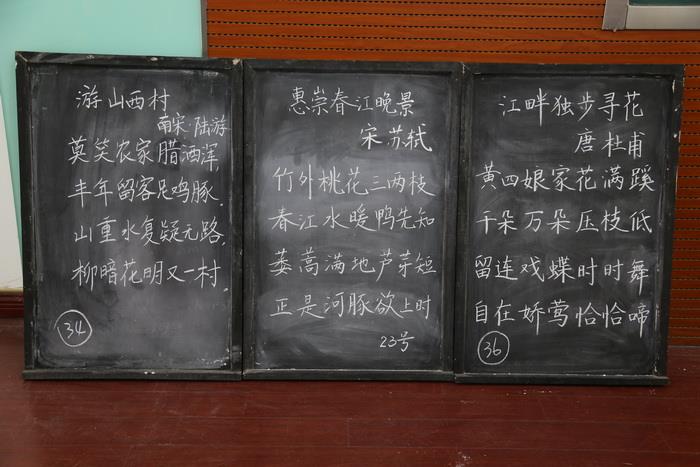 游山西村
南宋·陆游
莫笑农家腊酒浑
丰年留客足鸡豚.
山重水复疑无路.
柳暗花明又一村.
34
惠崇春江晚景
宋 苏轼
竹外桃花三两枝
春江水暖鸭先知
蒌蒿满地芦芽短
正是河豚欲上时
23号
江畔独步寻花
唐 杜甫
黄四娘家花满蹊
千朵万朵压枝低
留连戏蝶时时舞
自在娇莺恰恰啼
36